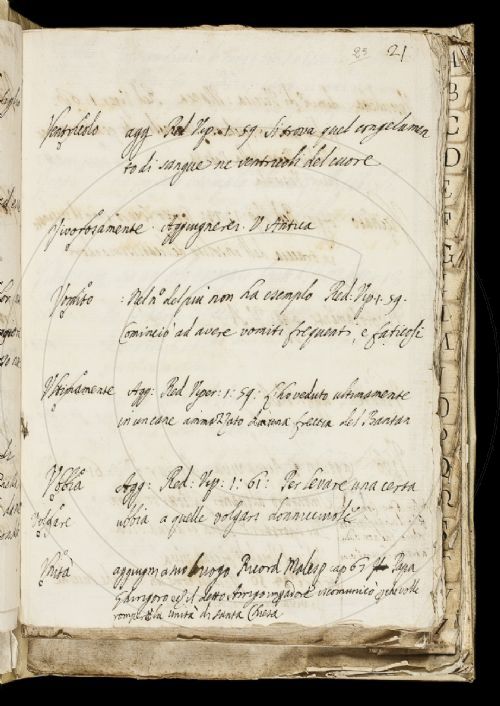 23 21
Ventricolo agg. Red. Vip. 1. 59. Si trova quel congelamen
to di sangue ne ventricoli del cuore
Vigorosamente. Aggiugnere. V. Antica
Vomito : Nel n.º del più non ha esemplo Red. Vip. 1. 59.
Cominciò ad avere vomiti frequenti, e faticosi
Ultimamente Agg: Red. Viper: 1: 59: ho veduto ultimamente
in un cane ammazzato da una freccia del Bantan
Ubbia Agg: Red: Vip: 1: 61: Per levare una certa
Volgare ubbia a quelle volgari donnicciuole
Unità aggiugni a suo luogo Ricord. Malesp. cap. 67 Papa
il detto Arrigo imperadore iscomunicò volle
rompere la unità di santa Chiesa
A
B
C
D
E
F
G
I
L